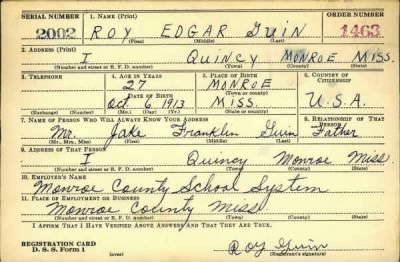 SERIAL NUMBER 1. NAME (Print) ORDER NUMBER
2002 ROY EDGAR GUIN 1463
(First) (Middle) (Last)
2. ADDRESS (Print)
I QUINCY MONROE MISS.
(Number and street or R. F. D. number) (Town) (County) (State)
3. TELEPHONE 4. AGE IN YEARS 5. PLACE OF BIRTH 6. COUNTRY OF CITIZENSHIP
27 MONROE
DATE OF BIRTH (Town or county)
Oct. 6 1913 MISS. U.S.A.
(Exchange) (No.) (Mo.) (Day) (Yr.) (State or country)
7. NAME OF PERSON WHO WILL ALWAYS KNOW YOUR ADDRESS 8. RELATIONSHIP OF THAT PERSON
Mr. Jake Franklin Guin Father
(Mr., Mrs., Miss) (First) (Middle) (Last)
9. ADDRESS OF THAT PERSON
I Quincy Monroe Miss
(Number and street or R. F. D. number) (Town) (County) (State)
10. EMPLOYER'S NAME
Monroe County School System
11. PLACE OF EMPLOYMENT OR BUSINESS
Monroe County Miss
(Number and street or R. F. D. number) (Town) (County) (State)
I AFFIRM THAT I HAVE VERIFIED ABOVE ANSWERS AND THAT THEY ARE TRUE.
REGISTRATION CARD
D. S. S. Form 1 (over) Roy Guin
(Registrant's signature)